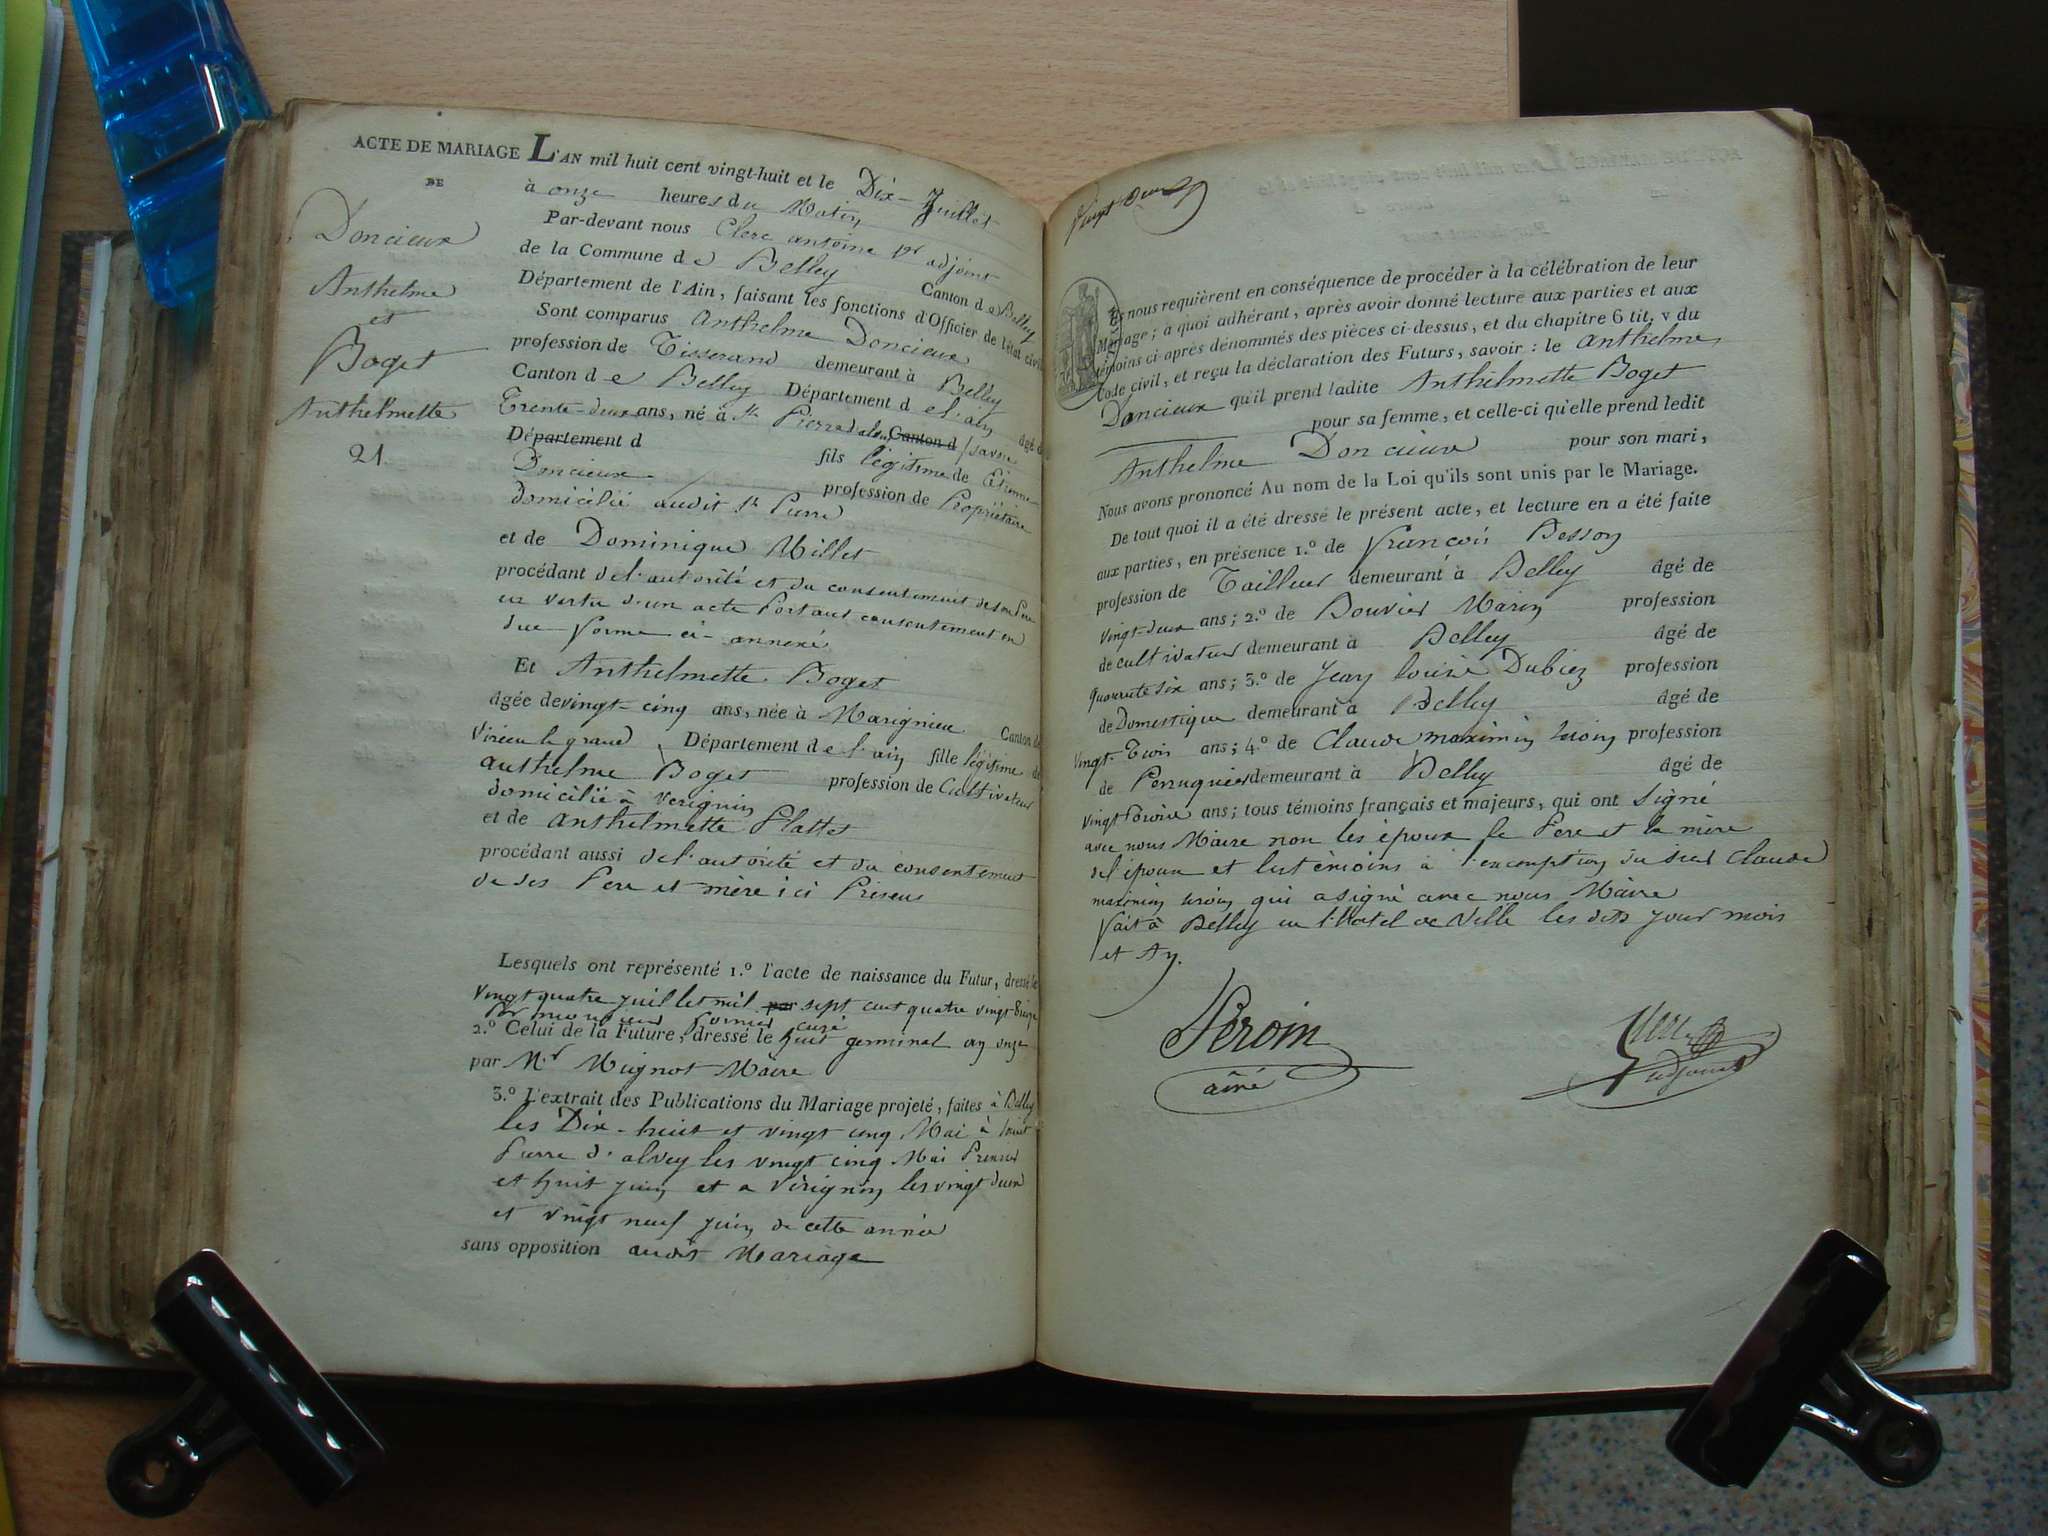 ACTE DE MARIAGE
DE
Doncieux
Anthelme
et
Boget
Anthelmette
21.
L'AN mil huit cent vingt-huit et le Dix Juillet
à onze heures du Matin
Par-devant nous Clerc antoine 1er adjoint
de la Commune de Belley Canton de Belley
Département de l'Ain, faisant les fonctions d'Officier de l'état civil
Sont comparus Anthelme Doncieux
profession de Tisserand demeurant à Belley
Canton de Belley Département de l'ain âgé de
Trente-deux ans, né à St Pierre d'alvey Canton d / savoie
Département d fils légitime de Etienne
Doncieux profession de Propriétaire
domicilié audit St Pierre
et de Dominique Millet
procédant de l'autorité et du consentement de son Père
en vertu d'un acte Portant consentement en
due forme ci-annexé
Et Anthelmette Boget
âgée de vingt-cinq ans, née à Marignieu Canton de
Virieu le grand, Département de l'ain fille légitime de
anthelme Boget profession de Cultivateur
domicilié à Verignin
et de anthelmette Plattet
procédant aussi de l'autorité et du consentement
de ses Pere et mère ici Présens
Lesquels ont représenté 1.º l'acte de naissance du Futur, dressé le
vingt quatre juillet mil par sept cent quatre vingt Seize
Par monsieur curé
2.º Celui de la Future, dressé le huit germinal an onze
par Mr Mignot Maire
3.º L'extrait des Publications du Mariage projeté, faites à Belley
les Dix-huit et vingt cinq Mai à saint
Pierre d'alvey les vingt cinq Mai Premier
et huit juin et a Vérignin les vingt deux
et vingt neuf juin de cette année
sans opposition audit Mariage
Vingt Deux
Et nous requièrent en conséquence de procéder à la célébration de leur
Mariage; à quoi adhérant, après avoir donné lecture aux parties et aux
témoins ci-après dénommés des pièces ci-dessus, et du chapitre 6 tit. v du
Code civil, et reçu la déclaration des Futurs, savoir: le Anthelme
Doncieux qu'il prend ladite Anthelmette Boget
pour sa femme, et celle-ci qu'elle prend ledit
Anthelme Doncieux pour son mari,
Nous avons prononcé Au nom de la Loi qu'ils sont unis par le Mariage.
De tout quoi il a été dressé le présent acte, et lecture en a été faite
aux parties, en présence 1.º de francois Besson
profession de Tailleur demeurant à Belley âgé de
vingt-deux ans; 2.º de Bouvier Marin profession
de cultivateur demeurant à Belley âgé de
quarante six ans; 3.º de Jean louise Dubiez profession
de Domestique demeurant à Belley âgé de
vingt-Trois ans; 4.º de Claude maximin profession
de Perruquier demeurant à Belley âgé de
vingt ans; tous témoins français et majeurs, qui ont signé
avec nous Maire non les époux le Pere et la mère
de l'épouse et les témoins à l'exemption du sieur Claude
maximin qui a signé avec nous Maire
fait à Belley en l'hotel de Ville les dits jour mois
et An.
Peroin
aîné
Clerc
adjoint